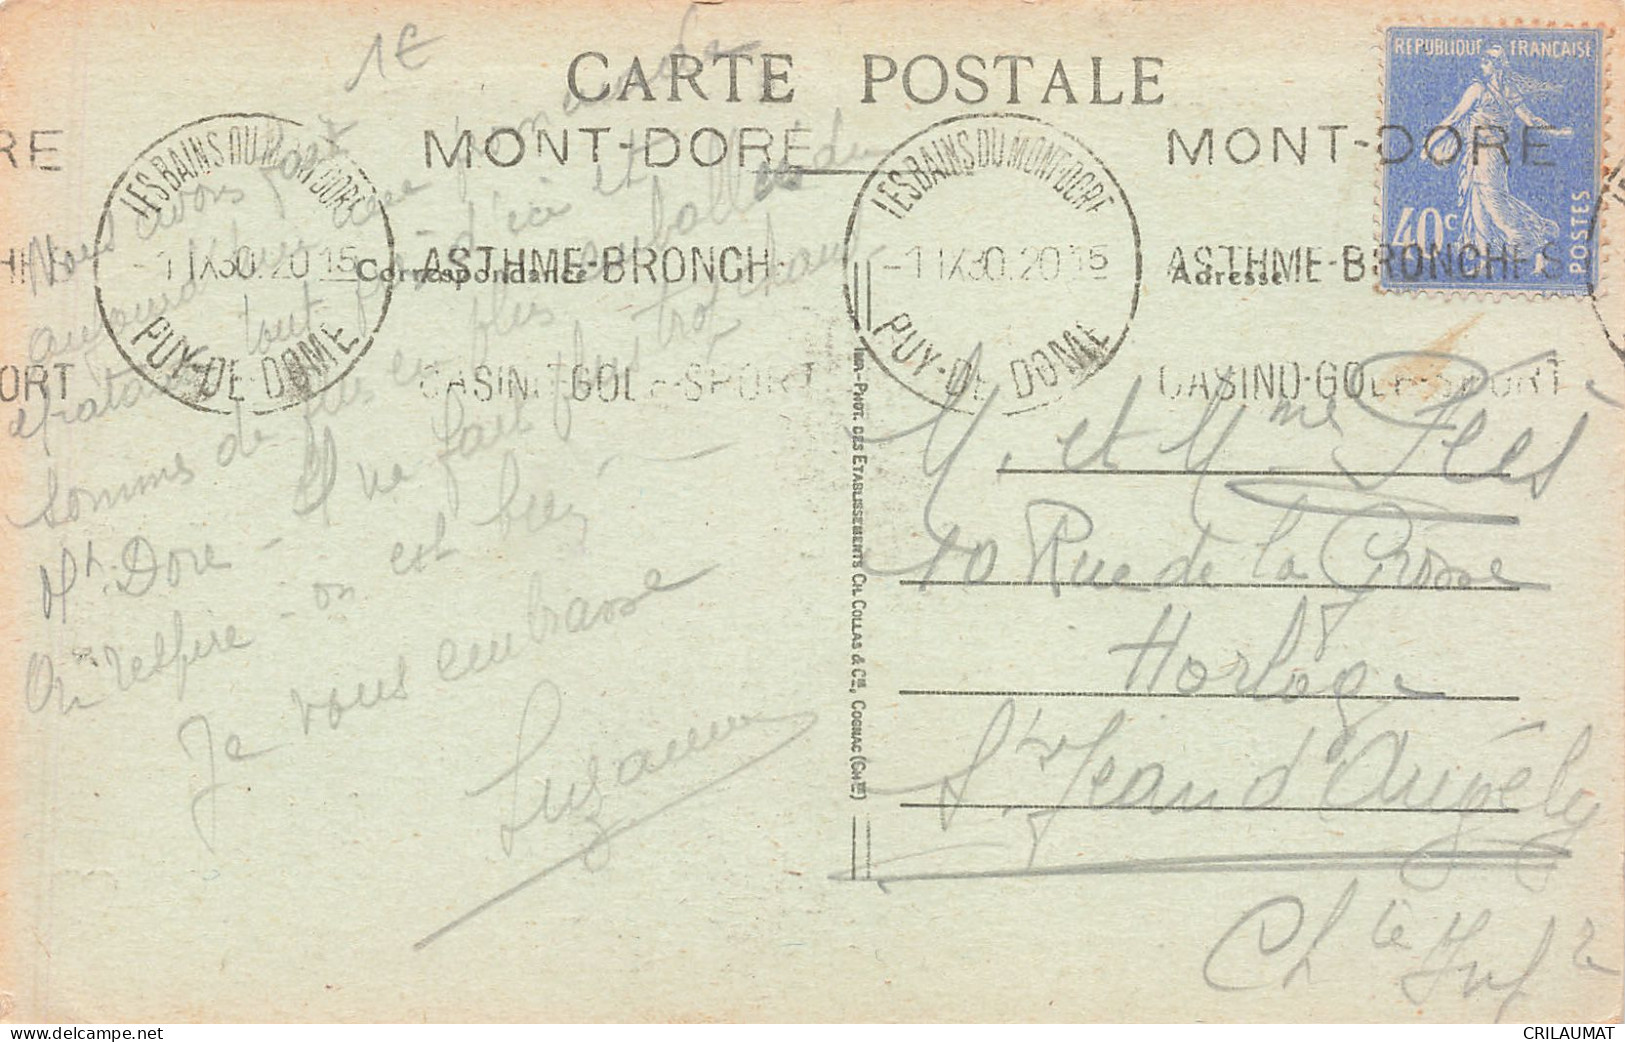 1€
CARTE POSTALE
REPUBLIQUE FRANÇAISE
40c
POSTES
RE
HES
ORT
LES BAINS DU MONT DORE
-1 IX 30. 20 15
PUY-DE DOME
MONT-DORE
ASTHME-BRONCH
CASINO-GOLF-SPORT
LES BAINS DU MONT DORE
-1 IX 30. 20 15
PUY-DE DOME
MONT-DORE
ASTHME-BRONCHES
CASINO-GOLF-SPORT
Correspondance
Adresse
Nous avons
tout d'ici et
sommes de plus en plus emballés du
Mt Dore - Il ne fait plus trop chaud
On respire - on est bien
Je vous embrasse
Suzanne
IMP.-PHOT. DES ETABLISSEMENTS CH. COLLAS & Cie, COGNAC (Chte)
M. et Mme
10 Rue de la Grosse
Horloge
St Jean d'Angély
Chte Infre
delcampe.net
CRILAUMAT